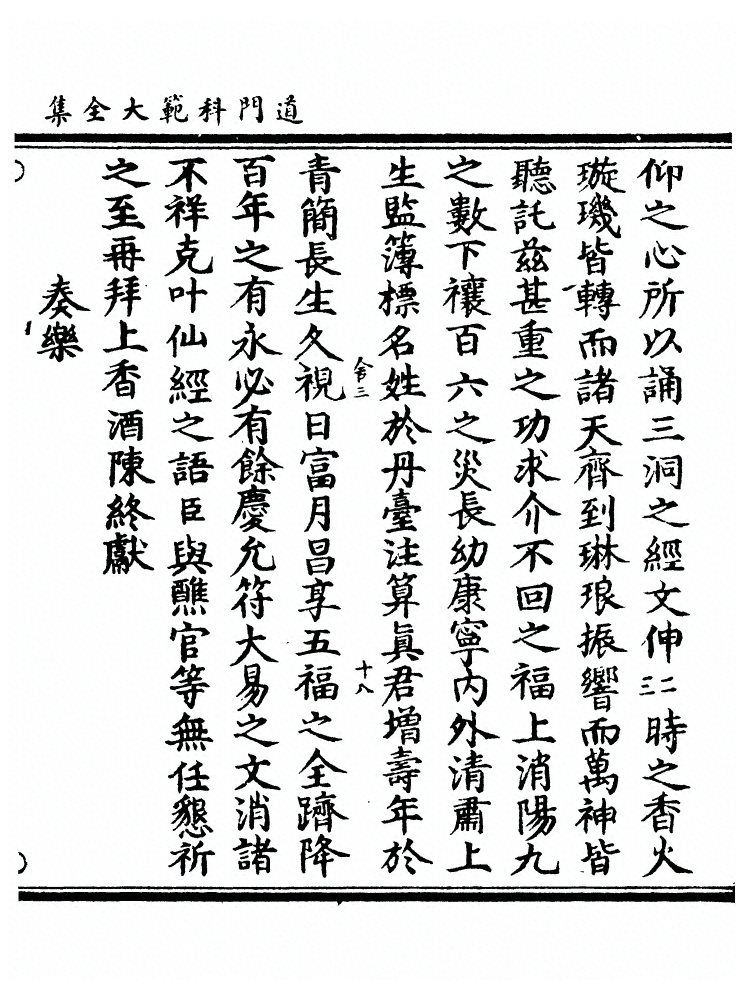 道門科範大全集
仰之心所以誦三洞之經文伸二三時之香火
璇璣皆轉而諸天齊到琳琅振響而萬神皆
聽託茲甚重之功求介不回之福上消陽九
之數下禳百六之災長幼康寧內外清肅上
生監簿標名姓於丹臺注算眞君增壽年於
舍三
十八
青簡長生久視日富月昌享五福之全躋降
百年之有永必有餘慶允符大易之文消諸
不祥克叶仙經之語臣與醮官等無任懇祈
之至再拜上香酒陳終獻
奏樂